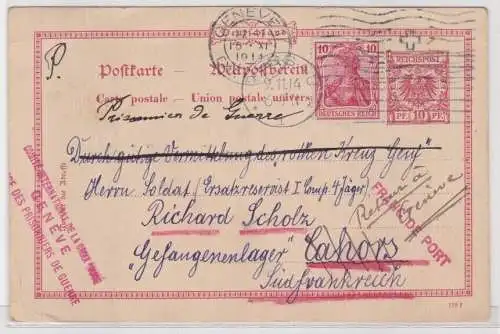 GENÈVE
15 XI
1914
P.
Postkarte — Weltpostverein
Carte postale — Union postale univers
Prisonnier de Guerre
10 10
DEUTSCHES REICH
REICHSPOST
PF 10 PF
.11.14
Durch gütige Vermittlung des "roten Kreuz Genf"
Herrn Soldat/Ersatzreservist I Comp. 4 Jäger/
Richard Scholz
"Gefangenenlager" Cahors
Südfrankreich
Retour à
Genève
FRANC DE PORT
COMITÉ INTERNATIONAL DE LA CROIX ROUGE
GENÈVE
CE DES PRISONNIERS DE GUERRE